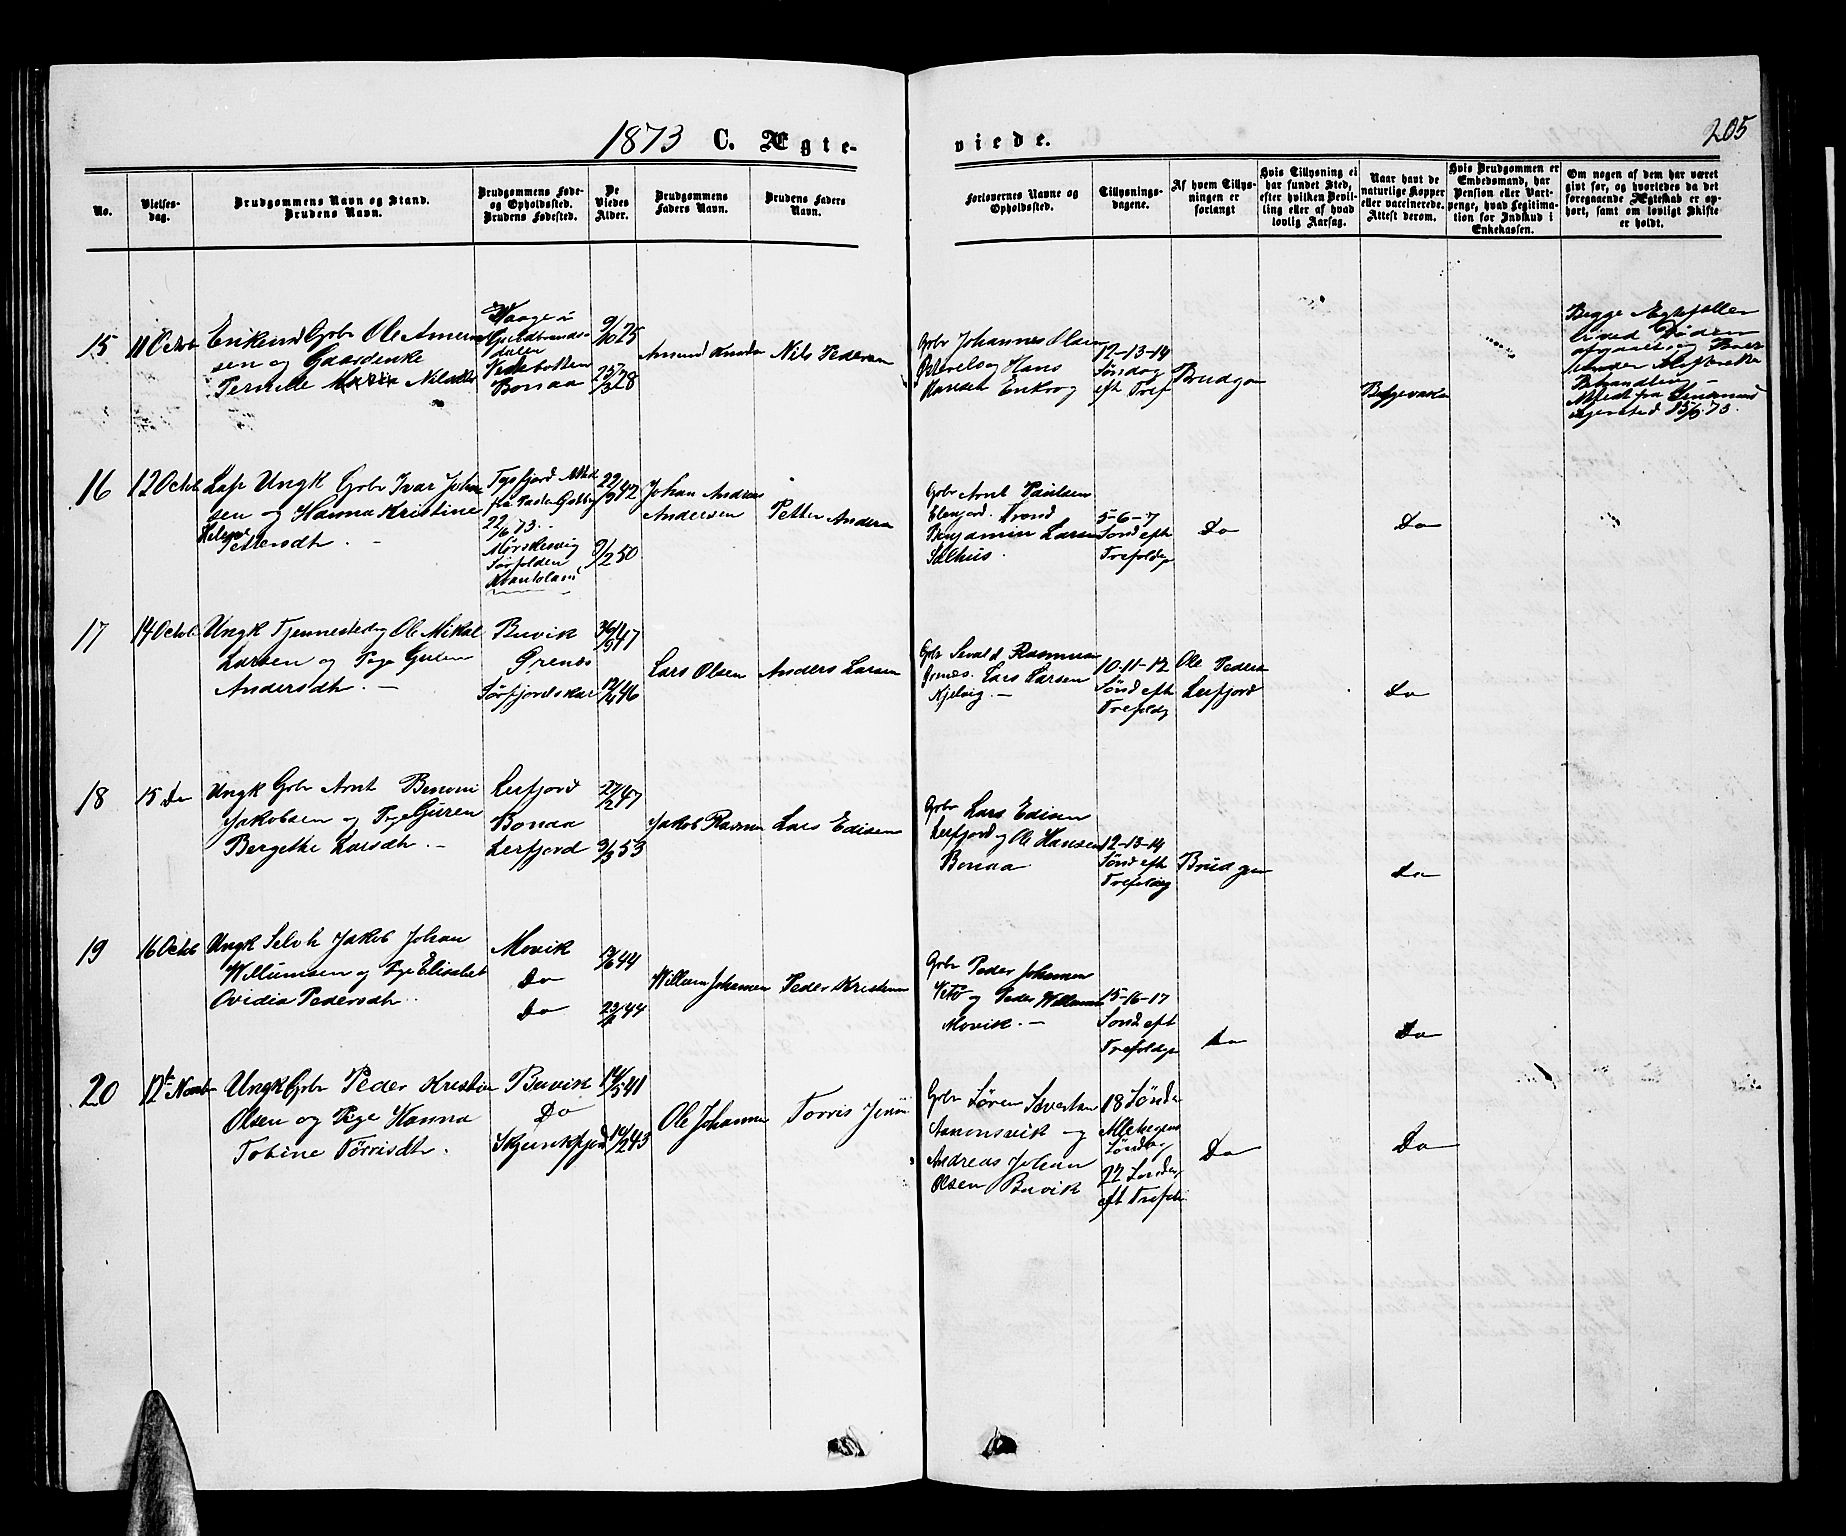 1873 C. Ægte-
viede.
205
No.
Vielses-
dag.
Brudgommens Navn og Stand.
Brudens Navn.
Brudgommens Føde-
og Opholdssted.
Brudens Fødested.
De
Viedes
Alder.
Brudgommens
Faders Navn.
Brudens Faders
Navn.
Forlovernes Navne og
Opholdssted.
Tillysnings-
dagene.
Af hvem Tillys-
ningen er
forlangt
Hvis Tillysning ei
har fundet Sted,
efter hvilken Bevil-
ling eller af hvad
lovlig Aarsag.
Naar havt de
naturlige Kopper
eller vaccinerede.
Attest derom.
Hvis Brudgommen er
Embedsmand, har
Pension eller Vart-
penge, hvad Legitima-
tion for Indskud i
Enkekassen.
Om nogen af dem har været
givt før, og hvorledes da det
foregaaende Ægteskab er op-
hørt, samt om lovligt Skifte
er holdt.
15
11 Octbr
Enkemd Gbr Ole Amund
sen og Gaardenke
Pernille Maria Nilsdtr
Vaage i
Gulbrands-
dalen
Bonaa
9/10 25
25/3 28
Amund Knudsn
Nils Pedersen
Gbr Johannes Olsen
og Hans
Hansen Enkrog
12-13-14
Søndag
eft Tref
Brudgom
Begge vacc
Begge Ægtefæller
ved Døden
afgaaet og
Behandling -
16
12 Octbr
Lap Ungk Gbr Ivar Johan
sen og Hanna Kristine
Pettersdtr. -
Tysfjord Attest
fra Pastor
22/6 73. -
Mørsksvig
Sørfolden
22/9 42
9/2 50
Johan Andreas
Andersen
Petter Anders
Gbr Arnt Paulsen
Elenfjord. Trond
Benjamin Larsen
Sælhus.
5-6-7
Sønd eft
Trefoldg
Do
Do
17
14 Octbr
Ungk Tjenestedrg Ole Mikal
Larsen og Pige Gurine
Andersdtr. -
Buvik
Grenes
Sørfjordskar
47
12/4 46
Lars Olsen
Anders Larsen
Gbr Sevald Rasmusen
Grenes. Lars Larsen
Kjelvig. -
10-11-12
Sønd eft
Trefoldg
Ole Peders
Leefjord
Do
18
15 Do
Ungk Gbr Arnt Benoni
Jakobsen og Pige Guren
Bergethe Larsdtr. -
Leefjord
Bonaa
Leefjord
27/2 47
9/3 53
Jakob Rasmu
Lars Edisen
Gbr Lars Edisen
Leefjord og Ole Hansen
Bonaa
12-13-14
Sønd eft
Trefoldg
Brudgom
Do
19
16 Octbr
Ungk Selvh Jakob Johan
Willumsen og Pige Elisabet
Ovidia Pedersdtr.
Movik
Do
Do
12/6 44
44
Willum Johansen
Peder Kristensen
Gbr Peder Johansen
og Peder Willumsen
Movik. -
15-16-17
Sønd eft
Trefoldg
Do
Do
20
12t Novbr
Ungk Gbr Peder Kristian
Olsen og Pige Hanna
Tobine Tørrisdtr.
Buvik
Do
14/5 41
14/2 43
Ole Johannes
Torris Jens
Gbr Søren Sivertsen
Aanonsvik og
Andreas Johan
Olsen Buvik
18 Sønda
Allehegens
Søndag
22 Søndag
eft Trefold
Do
Do